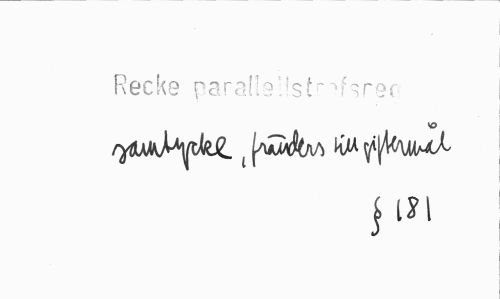 Recke parallellstrofsreg
samtycke, fränders till giftermål
§ 181